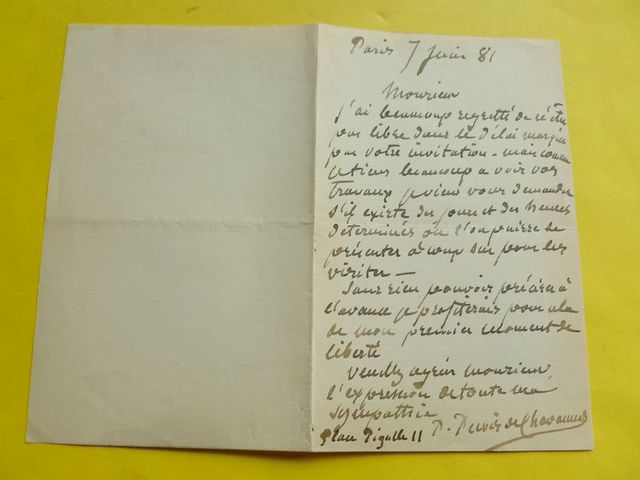 Paris 7 Juin 81
Monsieur
J'ai beaucoup regretté de n'être
pas libre dans le délai marqué
par votre invitation - mais comme
je tiens beaucoup a voir vos
travaux je viens vous demander
s'il existe des jours et des heures
determinés où l'on puisse se
présenter à coup sur pour les
visiter —
Sans rien pouvoir préciser à
l'avance je profiterais pour cela
de mon premier moment de
liberté
Veuillez agréer monsieur,
l'expression de toute ma
sympathie
P. Puvis de Chavannes
Place Pigalle 11